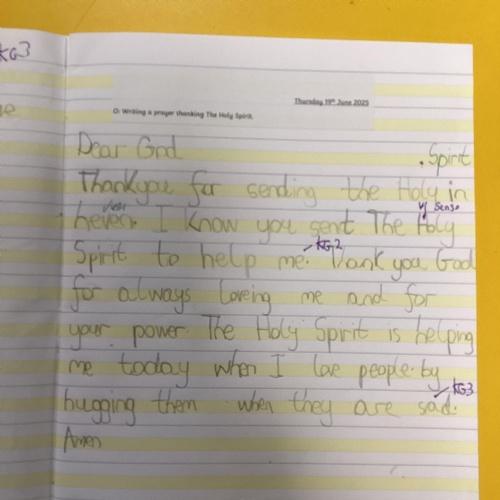 KG3
Thursday 19th June 2025
O: Writing a prayer thanking The Holy Spirit.
Dear God
. Spirit
Thankyou for sending the Holy in
heven. I know you sent The Holy
sense
Spirit to help me. Thank you God
KG2
for always loveing me and for
your power. The Holy Spirit is helping
me today when I love people by
KG3
hugging them when they are sad.
Amen